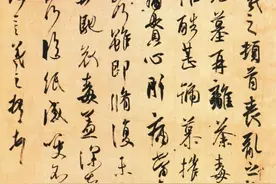 羲之頓首喪亂之
墓再離荼毒
酷甚號慕摧
貫心肝痛當
雖即脩復未
馳哀毒益深
臨紙感哽不
羲之頓首